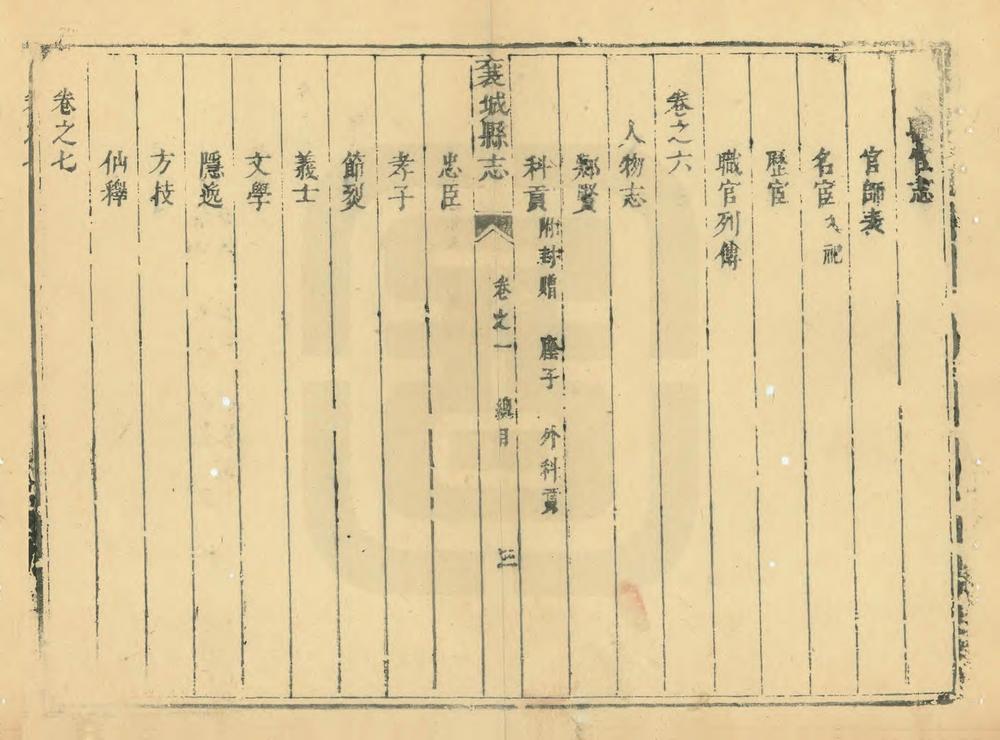 職官志
官師表
名宦入祀
歷宦
職官列傳
卷之六
人物志
鄉賢
科貢附封贈 廕子 外科貢
襄城縣志 卷之一 總目 三
忠臣
孝子
節烈
義士
文學
隱逸
方技
仙釋
卷之七